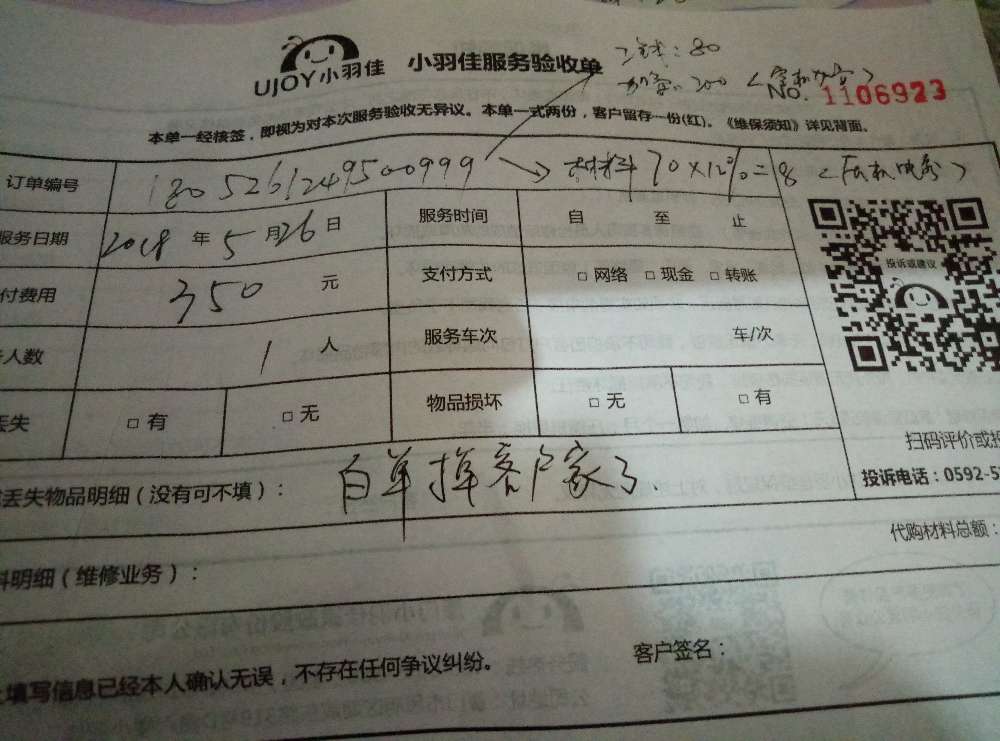 80
UJOY小羽佳 小羽佳服务验收单
200
NO. 1106923
本单一经核签，即视为对本次服务验收无异议。本单一式两份，客户留存一份(红)。《维保须知》详见背面。
订单编号 1805261249500999 材料 70×12%=8
服务日期 2018 年 5 月 26 日 服务时间 自 至 止
投诉或建议
付费用 350 元 支付方式 □ 网络 □ 现金 □ 转账
人数 1 人 服务车次 车/次
丢失 □ 有 □ 无 物品损坏 □ 无 □ 有
扫码评价或投
丢失物品明细（没有可不填）： 白单掉客户家了
投诉电话：0592-5
代购材料总额：
料明细（维修业务）：
客户签名：
上填写信息已经本人确认无误，不存在任何争议纠纷。